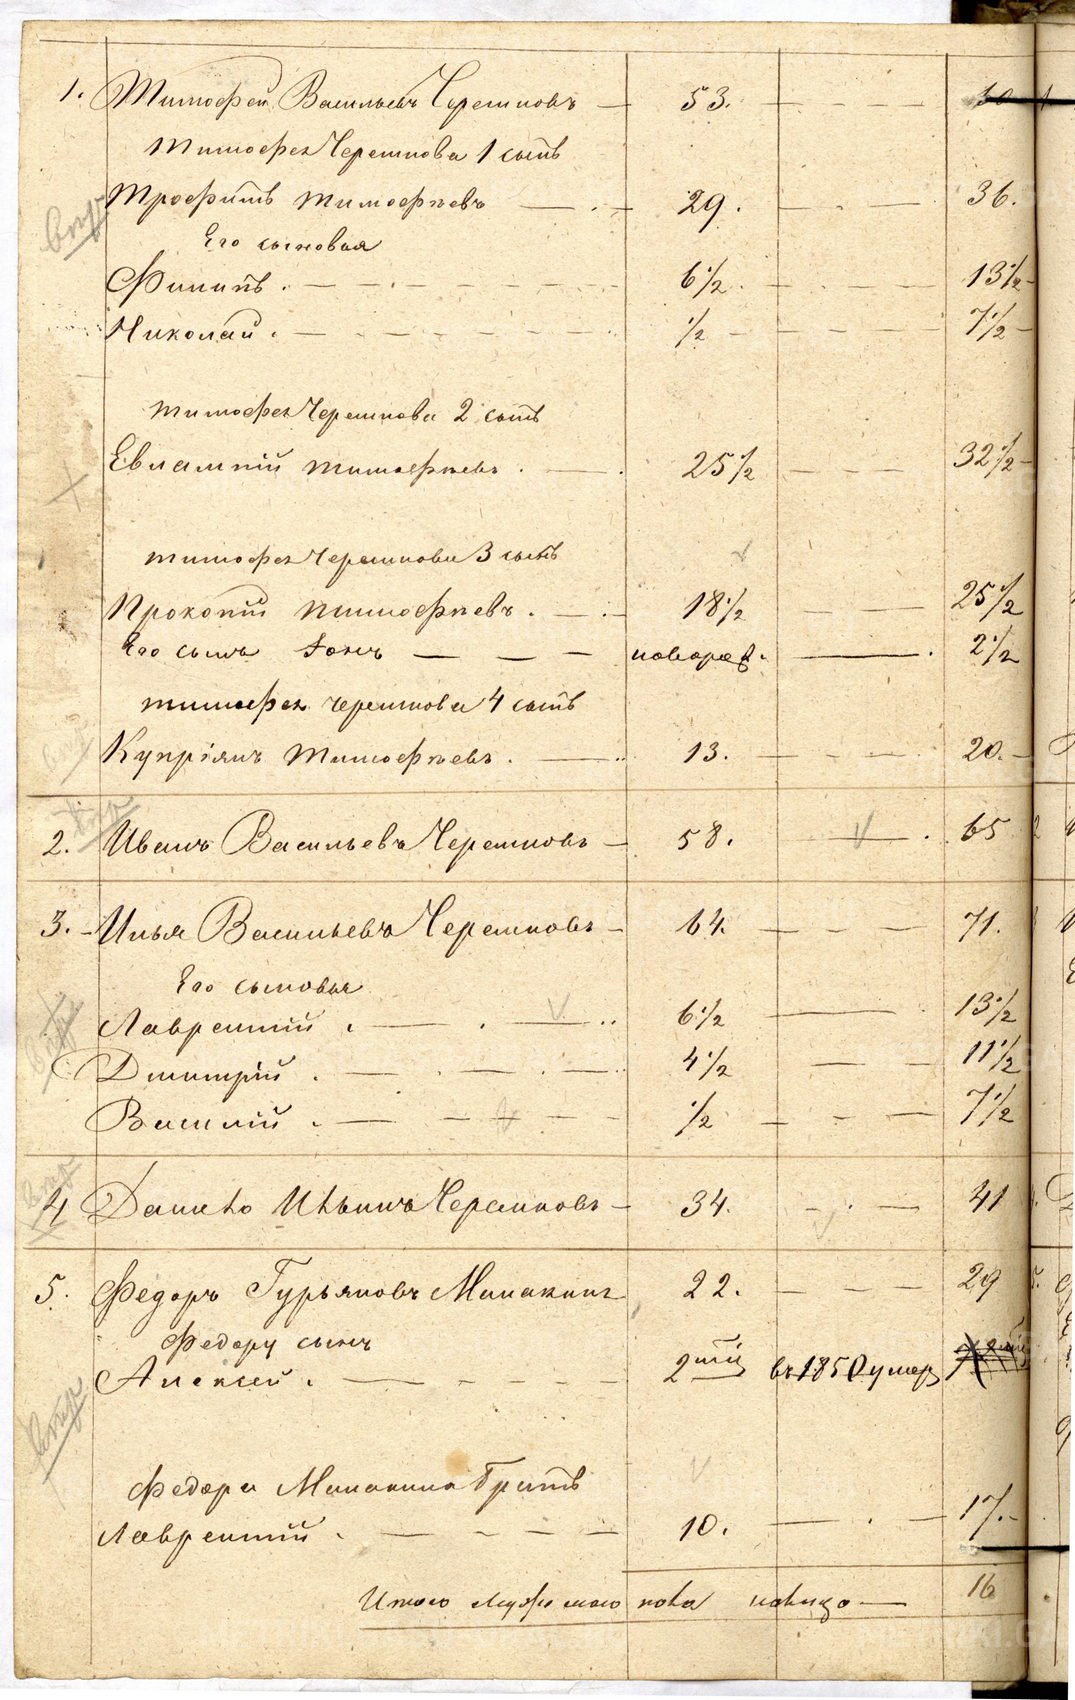 1. Тимофей Васильевъ Черепновъ — 53. — — — 60
Тимофея Черепнова 1 сынъ
Трофимъ Тимофѣевъ — . — 29. — . — 36.
Его сыновья
Филипъ . — — . — — — 6 1/2 . — . — — 13 1/2
Николай . — — — — — — 1/2 — — — — 7 1/2
Тимофея Черепнова 2 сынъ
Евлампій Тимофѣевъ . — . 25 1/2 — — — 32 1/2
Тимофея Черепнова 3 сынъ
Прокопій Тимофѣевъ . — . — 18 1/2 — — 25 1/2
Его сынъ — — — новорож. — . 2 1/2
Тимофея Черепнова 4 сынъ
Купріянъ Тимофѣевъ . — .. 13. — — — — 20. —
2. Иванъ Васильевъ Черепновъ — 58. — . 65
3. Илья Васильевъ Черепновъ — 64. — — — — 71.
Его сыновья
Лаврентій . — . — .. 6 1/2 — . 13 1/2
Дмитрій . — . — . — .. 4 1/2 — — 11 1/2
Василій . — — — — — 1/2 — - — 7 1/2
4 Данило Ильинъ Черепновъ — 34. - . — 41
5. Федоръ Гурьяновъ Минакинъ 22. — — — 29
Федору сынъ
Алексей . — — — — — 2 въ 1850 умер
Федора Минакина братъ
Лаврентій . — — — — 10. — . — 17. —
Итого мужеского пола налицо — 16